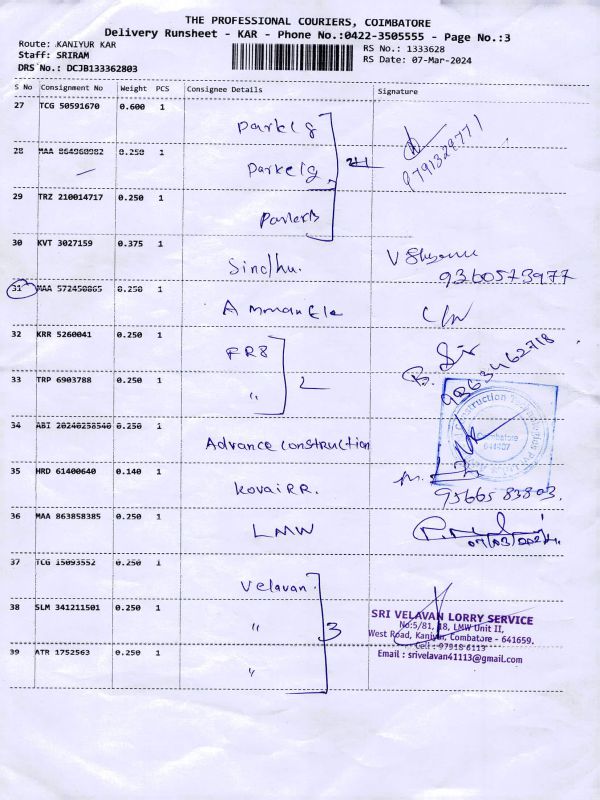 THE PROFESSIONAL COURIERS, COIMBATORE
Delivery Runsheet - KAR - Phone No.:0422-3505555 - Page No.:3
Route: KANIYUR KAR RS No.: 1333628
Staff: SRIRAM RS Date: 07-Mar-2024
DRS No.: DCJB133362803
S No Consignment No Weight PCS Consignee Details Signature
27 TCG 50591670 0.600 1
Parkelg 9791329771
28 MAA 864960982 0.250 1
Parkelg
29 TRZ 210014717 0.250 1
30 KVT 3027159 0.375 1
Sindhu. 9360573977
31 MAA 572450865 0.250 1
32 KRR 5260041 0.250 1
FR8 9363462718
33 TRP 6903788 0.250 1
" 2
34 ABI 20240258540 0.250 1
Advance construction
Coimbatore
35 HRD 61400640 0.140 1
KovaiRR. 9566583803.
36 MAA 863858385 0.250 1
LMW
07/03/2024.
37 TCG 15093552 0.250 1
Velavan.
38 SLM 341211501 0.250 1
" 3
SRI VELAVAN LORRY SERVICE
No:5/81, 18, LMW Unit II,
West Road, Kaniyur, Combatore - 641659.
Cell : 97918 6113
39 ATR 1752563 0.250 1
Email : srivelavan41113@gmail.com
"